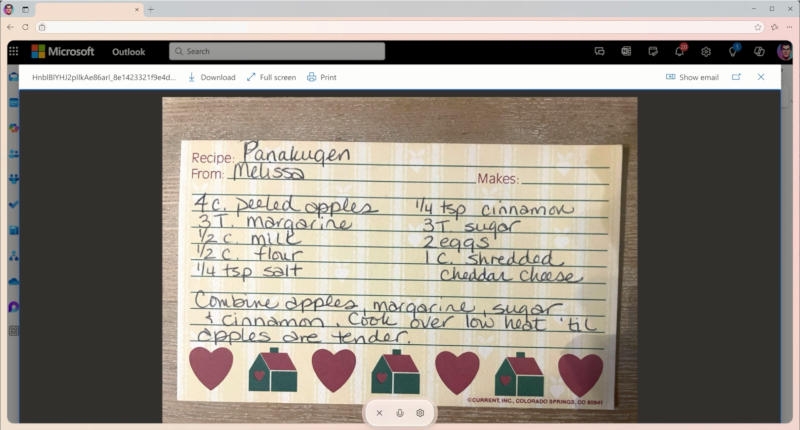 Microsoft Outlook Search 20
HnbIBIYHJ2plIkAe86arl_8e1423321f9e4d... Download Full screen Print Show email
Recipe: Panakugen
From: Melissa Makes:
4 c. peeled apples 1/4 tsp cinnamon
3 T. margarine 3 T. sugar
1/2 c. milk 2 eggs
1/2 c. flour 1 c. shredded
1/4 tsp salt cheddar cheese
Combine apples, margarine, sugar
& cinnamon. Cook over low heat 'til
apples are tender.
©CURRENT, INC., COLORADO SPRINGS, CO 80941